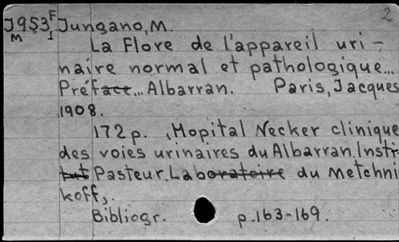 J953 F Jungano, M. 2
M 1
La Flore de l'appareil uri-
naire normal et pathologique...
Préface... Albarran. Paris, Jacques
1908.
172 p. (Hopital Necker clinique
des voies urinaires du Albarran. Insti-
tut Pasteur. Laboratoire du Metchni
koff).
Bibliogr. p.163-169.